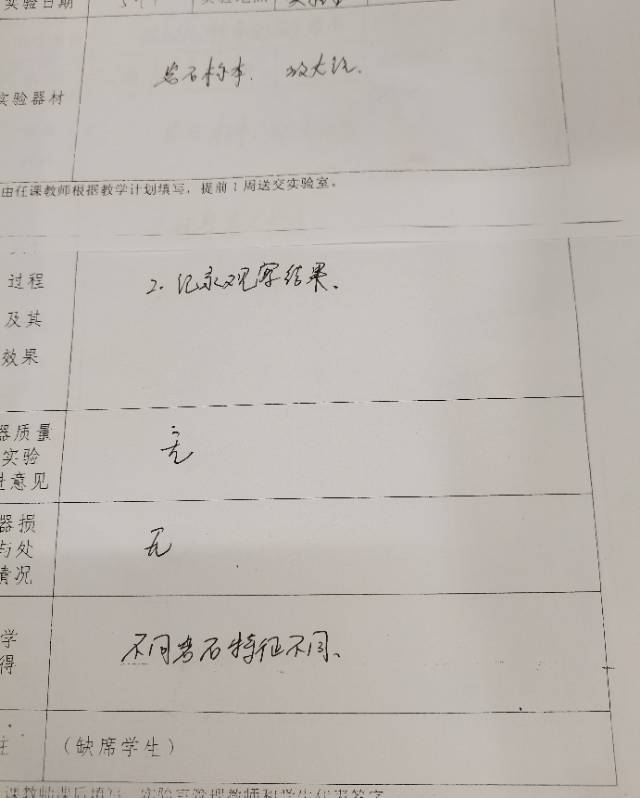 实验日期
实验器材 岩石标本、放大镜.
由任课教师根据教学计划填写，提前1周送交实验室。
过程 2. 记录观察结果、
及其
效果
器质量 无
实验
性意见
器损 无
与处
情况
学 不同岩石特征不同、
得
注 （缺席学生）